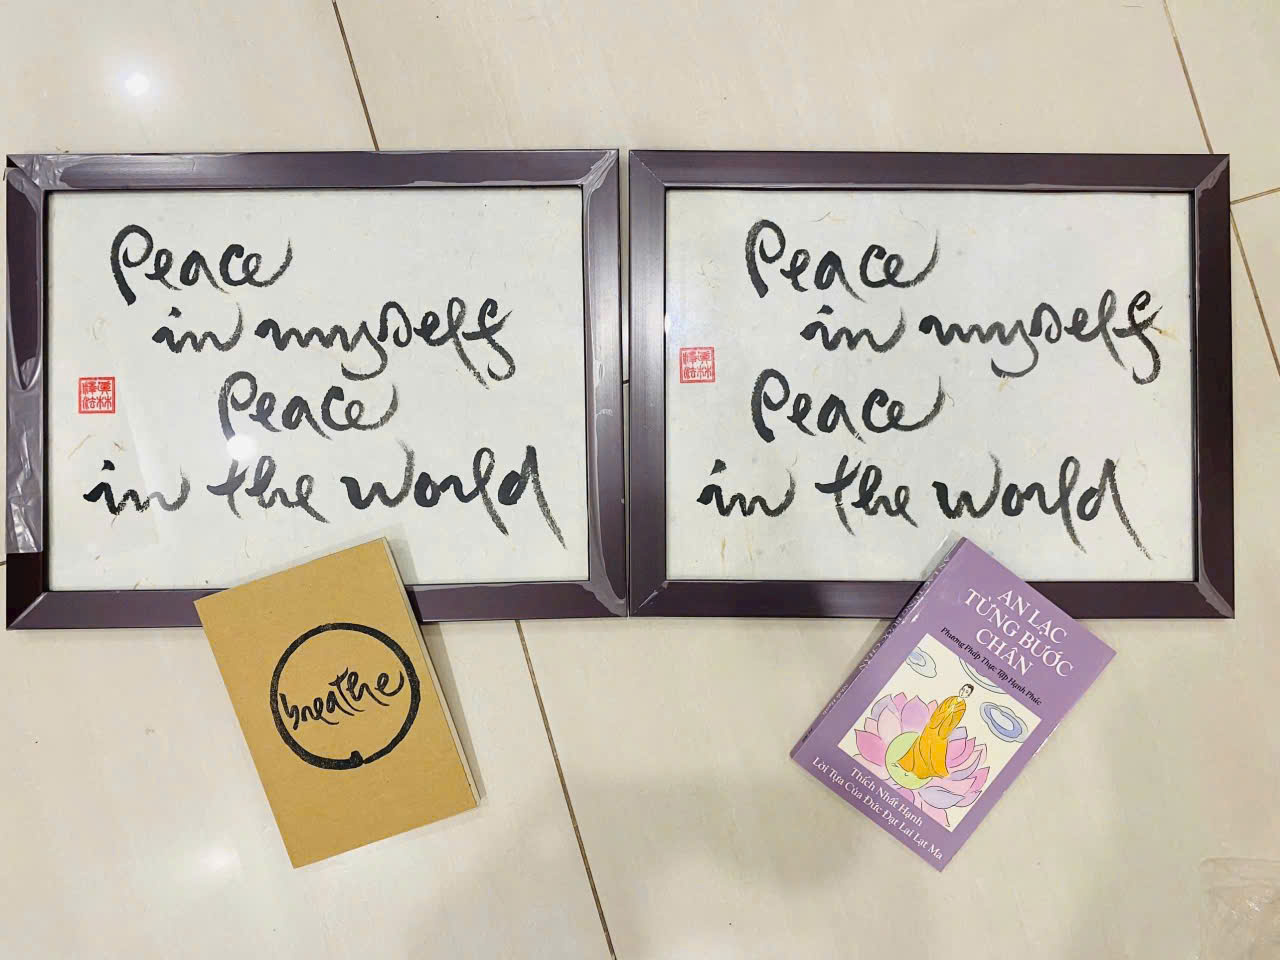 Peace
in myself
Peace
in the world
Peace
in myself
Peace
in the world
breathe
AN LẠC
TỪNG BƯỚC
CHÂN
Phương Pháp Thực Tập Hạnh Phúc
Thích Nhất Hạnh
Lời Tựa Của Đức Đạt Lai Lạt Ma